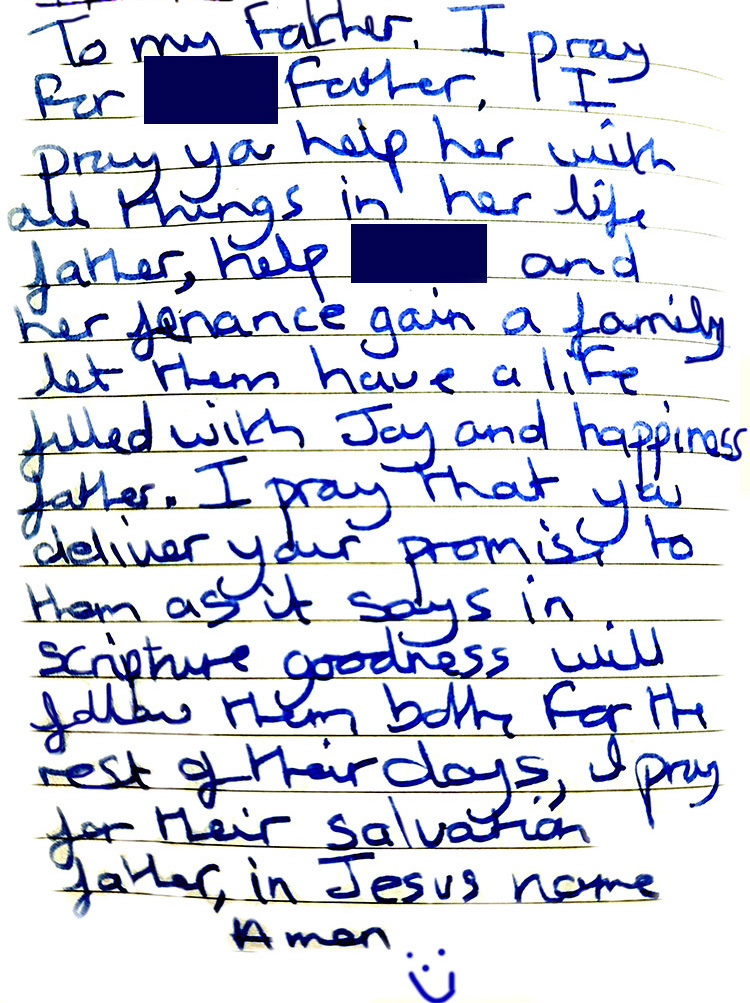 To my Father. I pray
for Father, I
pray ya help her with
all things in her life
father, help and
her fenance gain a family
let them have a life
filled with Joy and happiness
father. I pray that ya
deliver your promise to
them as it says in
scripture goodness will
follow them both for the
rest of their days, I pray
for their salvation
father, in Jesus name
Amen